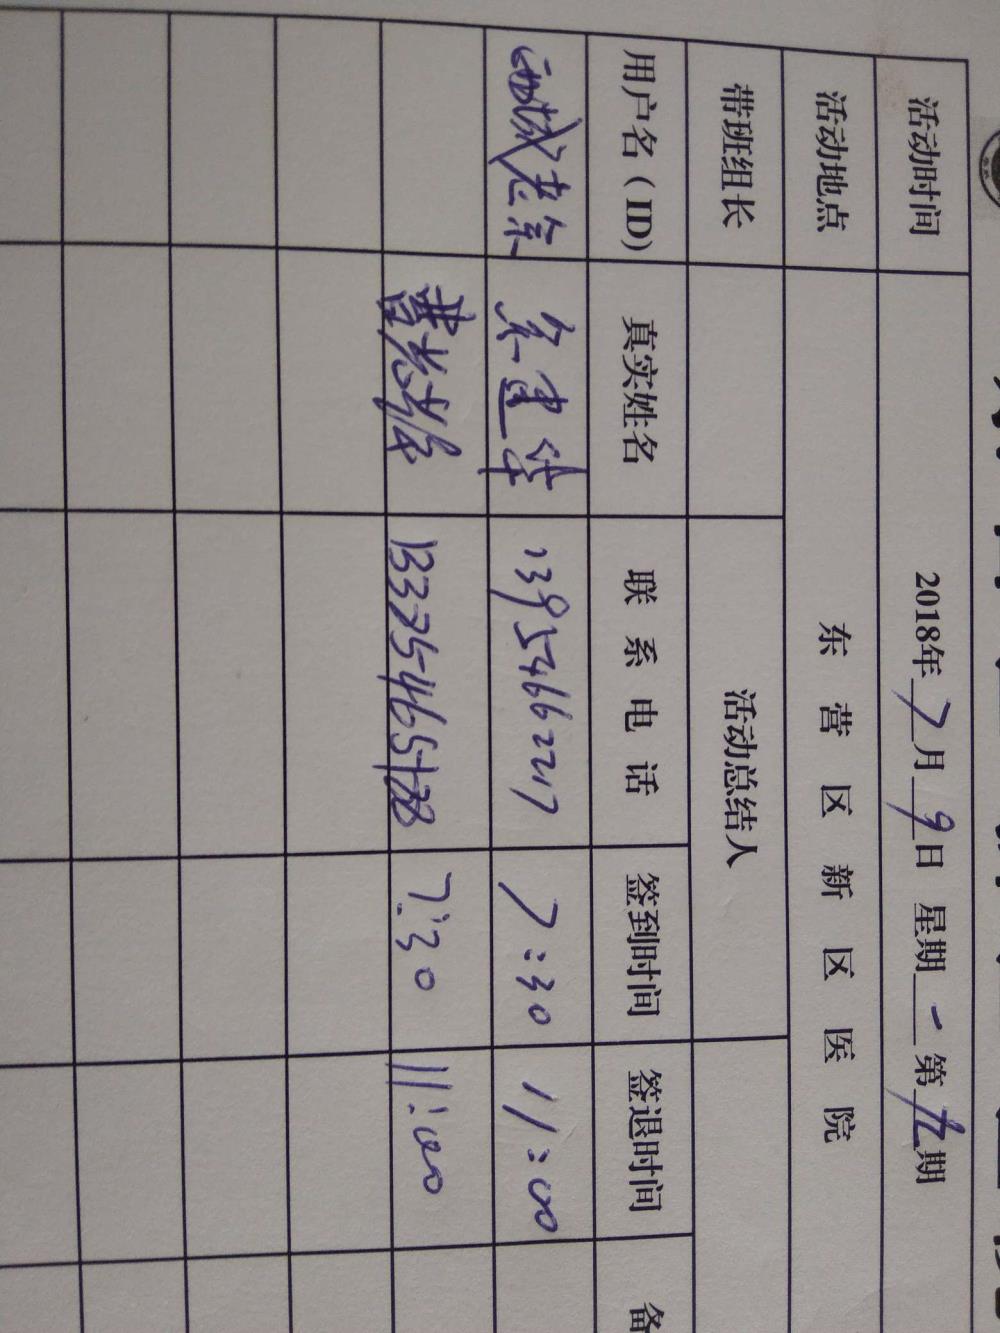 活动时间 2018年7月9日 星期一 第九期
活动地点 东营区新区医院
带班组长 活动总结人
用户名（ID） 真实姓名 联系电话 签到时间 签退时间 备
西城老余 余建华 13954662217 7:30 11:00
7:30 11:00